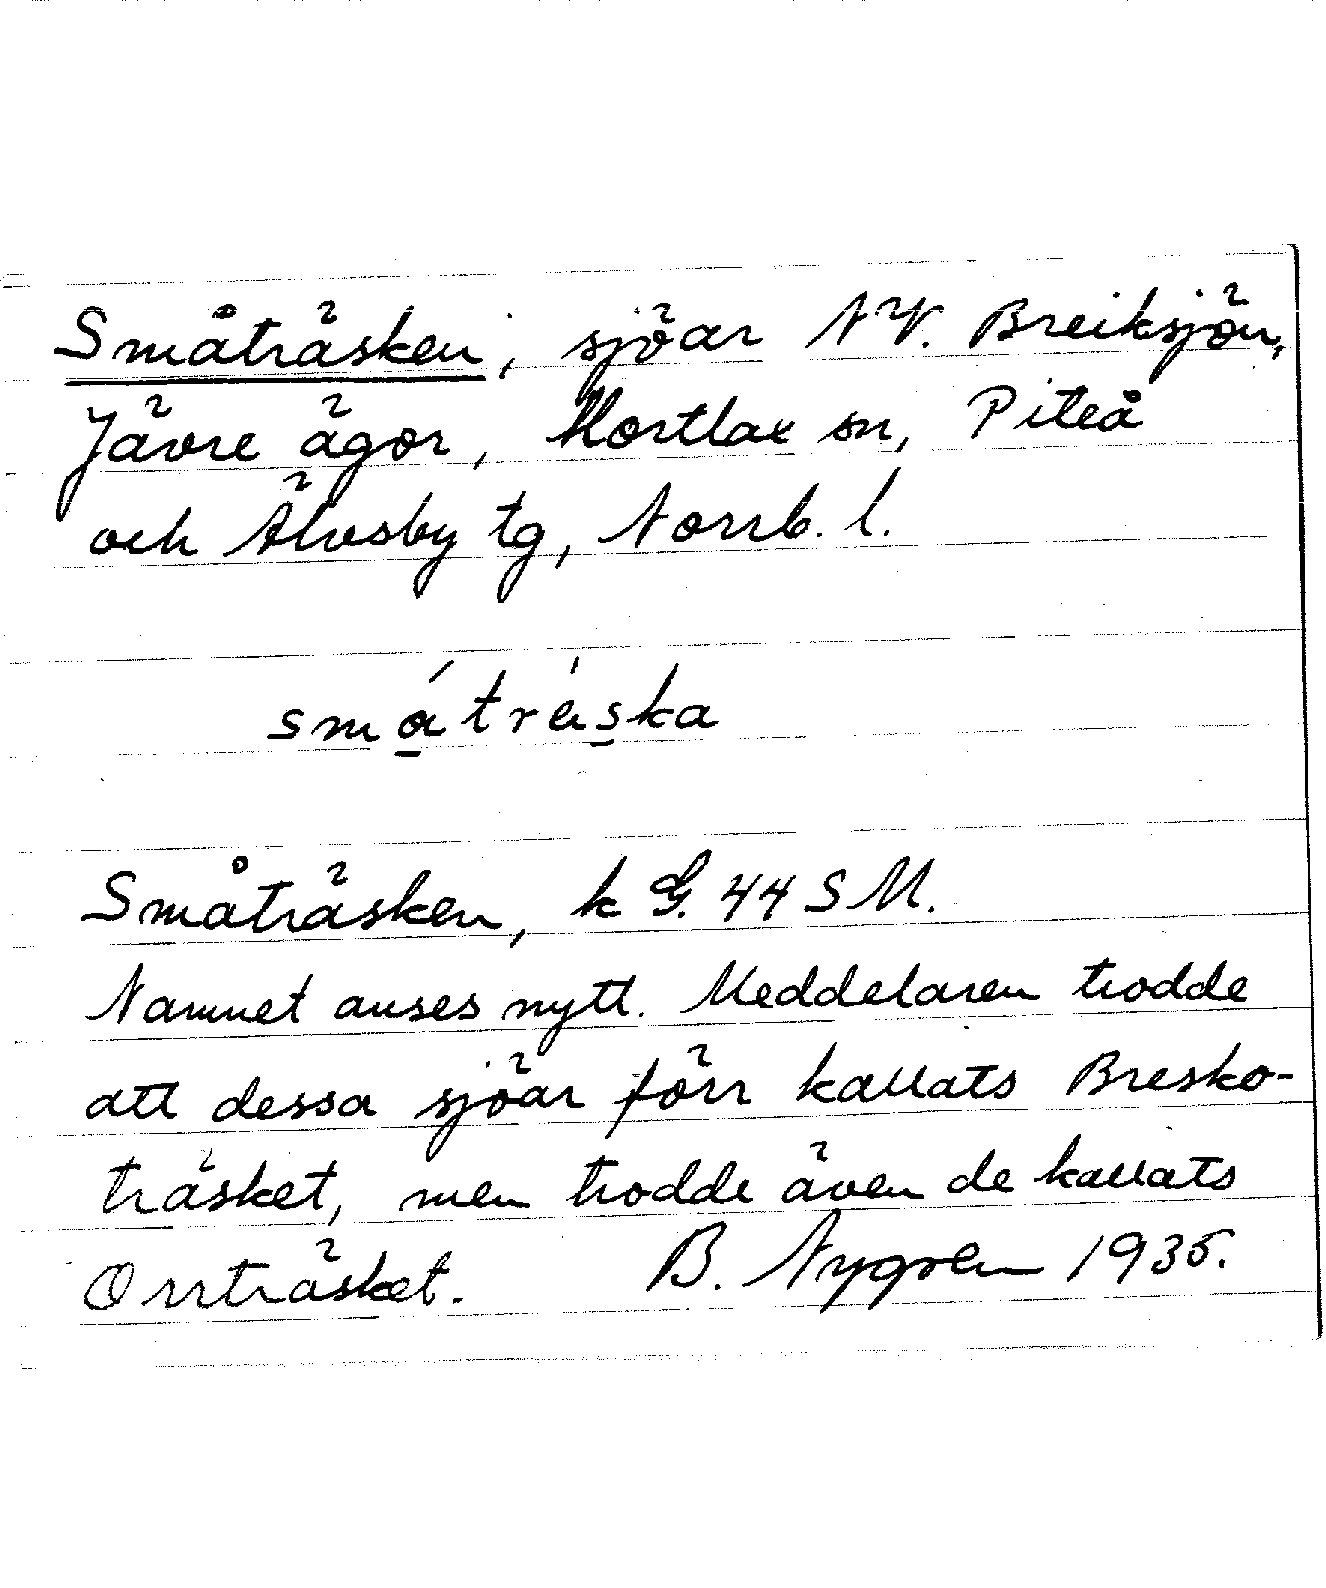 Småträsken, sjöar NV. Breiksjön,
Jävre ägor, Hortlax sn, Piteå
och Älvsby tg, Norrb. l.
småträska
Småträsken, k G. 44 S M.
Namnet anses nytt. Meddelaren trodde
att dessa sjöar förr kallats Bresko-
träsket, men trodde även de kallats
Orrträsket. B. Nygren 1935.